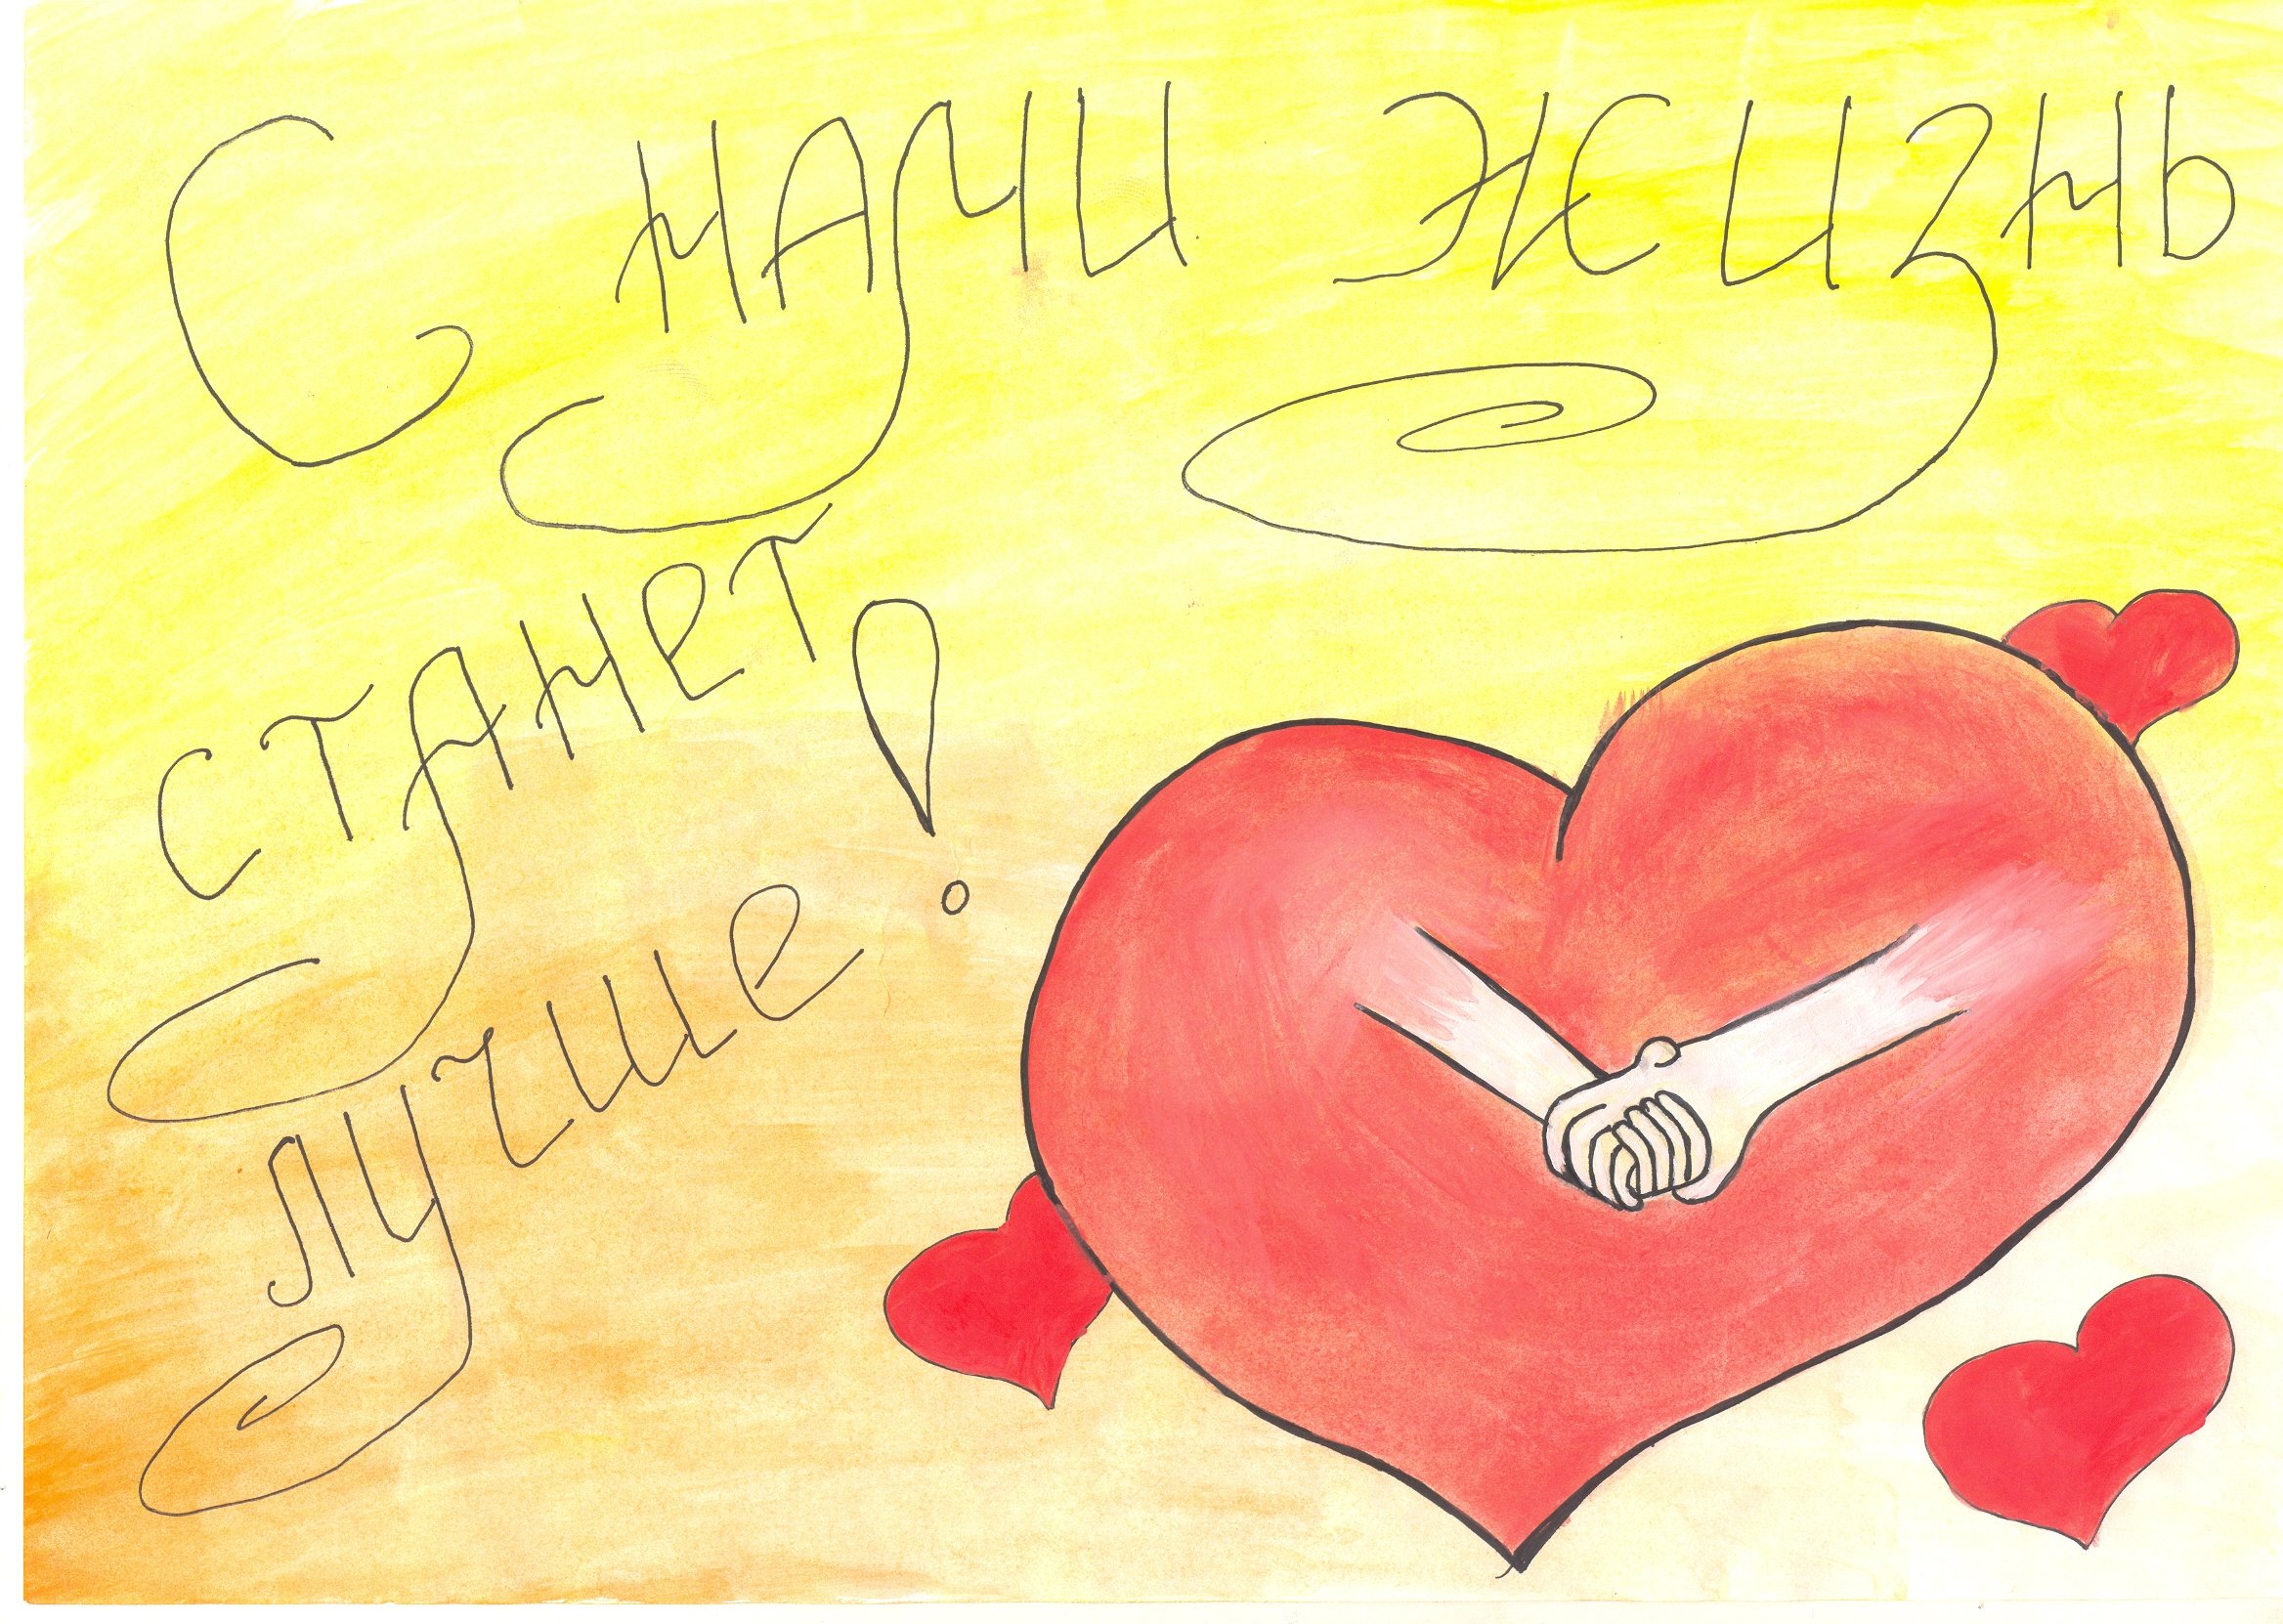 С нами жизнь
станет
лучше!